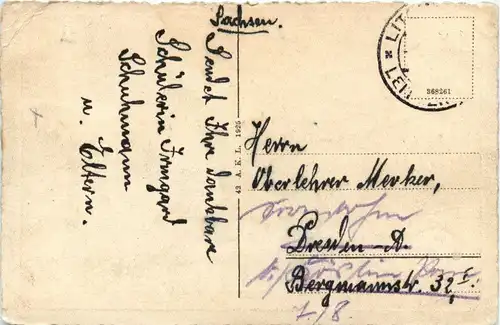 Sachsen.
Sendet Ihre dankbare
Schülerin Irmgard
Schuhmann
u. Eltern.
43 A. K. L. 1925
LIT
LEI
368261
Herrn
Oberlehrer Merker,
Dresden-A.
Bergmannstr. 32 I.
7/8.